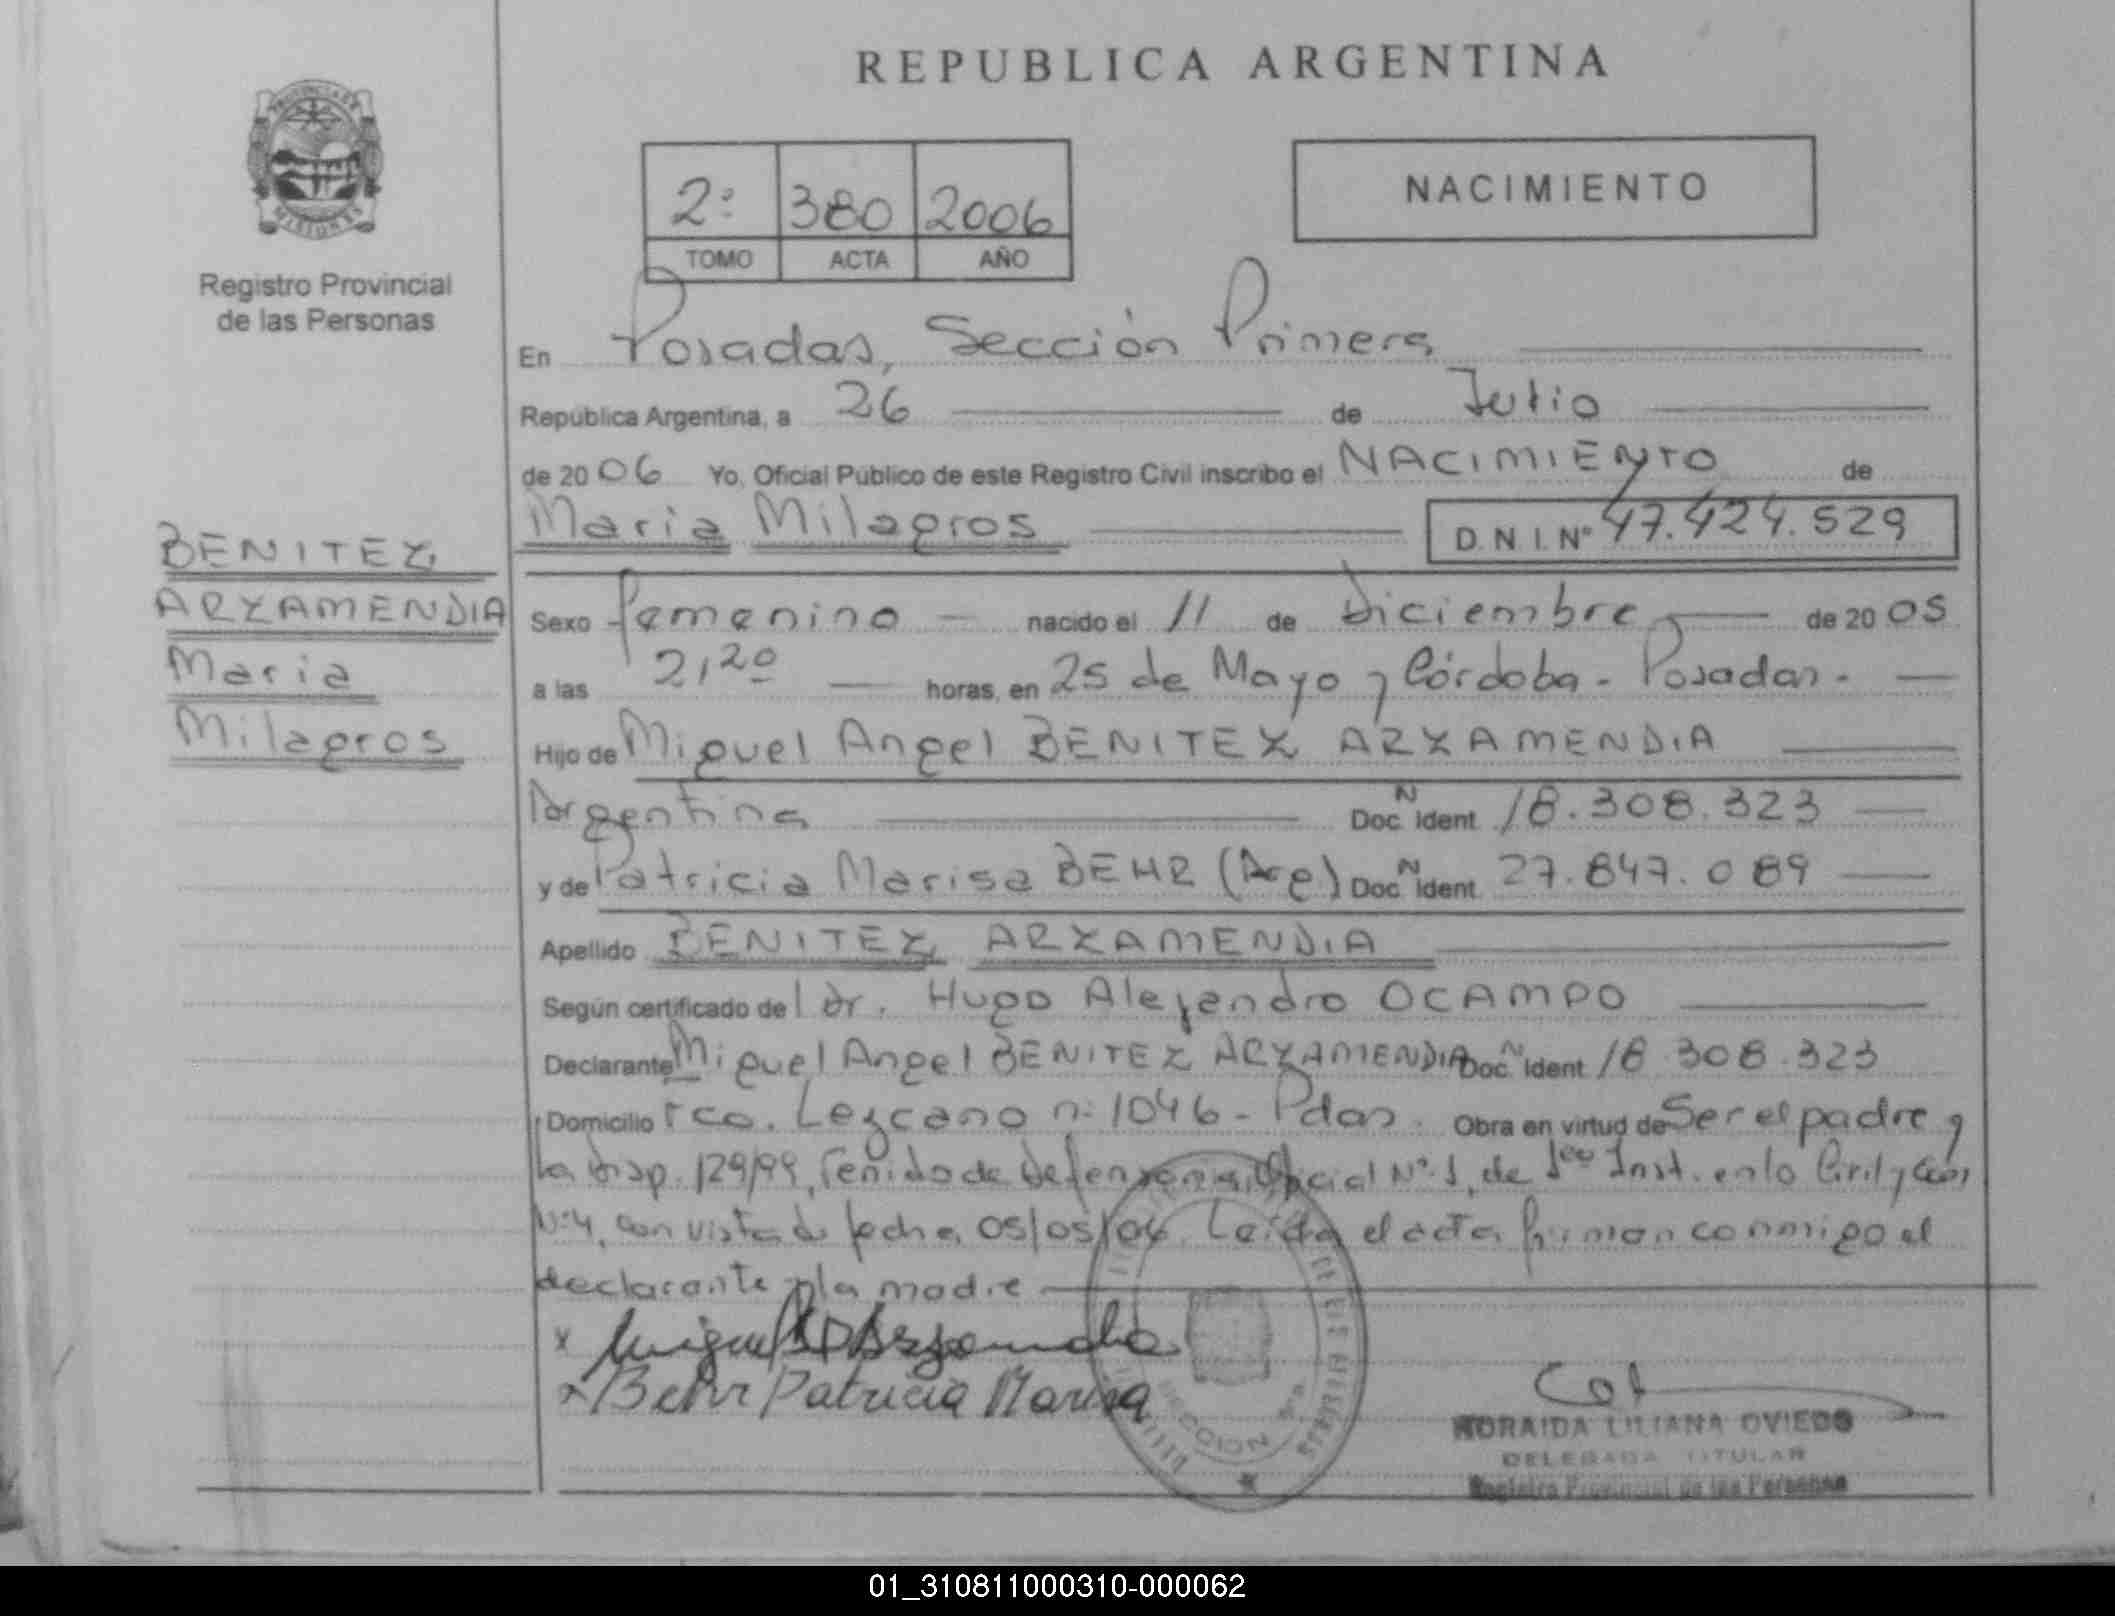 REPUBLICA ARGENTINA
PROVINCIA DE
MISIONES
Registro Provincial
de las Personas
2º 380 2006
TOMO ACTA AÑO
NACIMIENTO
En Posadas, Sección Primera
República Argentina, a 26 de Julio
de 2006 Yo, Oficial Público de este Registro Civil inscribo el NACIMIENTO de
Maria Milagros D.N.I. Nº 47.424.529
BENITEZ
ARZAMENDIA
Maria
Milagros
Sexo femenino nacido el 11 de Diciembre de 2005
a las 21,20 horas, en 25 de Mayo y Córdoba - Posadas.
Hijo de Miguel Angel BENITEZ ARZAMENDIA
Argentina Doc. N Ident 18.308.323
y de Patricia Marisa BEHR (Arg) Doc. N Ident 27.847.089
Apellido BENITEZ ARZAMENDIA
Según certificado del Dr. Hugo Alejandro OCAMPO
Declarante Miguel Angel BENITEZ ARZAMENDIA Doc. N Ident 18.308.323
Domicilio Fco. Lezcano nº 1046 - Pdas. Obra en virtud de Ser el padre y
la Disp. 129/99, Venido de Defensoria Oficial Nº 1, de 1era Inst. en lo Civil y
Nº 4, con vista de fecha 05/05/06. Leída el acta firman conmigo el
declarante y la madre
x
x Behr Patricia Marisa
NORAIDA LILIANA OVIEDO
DELEGADA TITULAR
Registro Provincial de las Personas
01_310811000310-000062